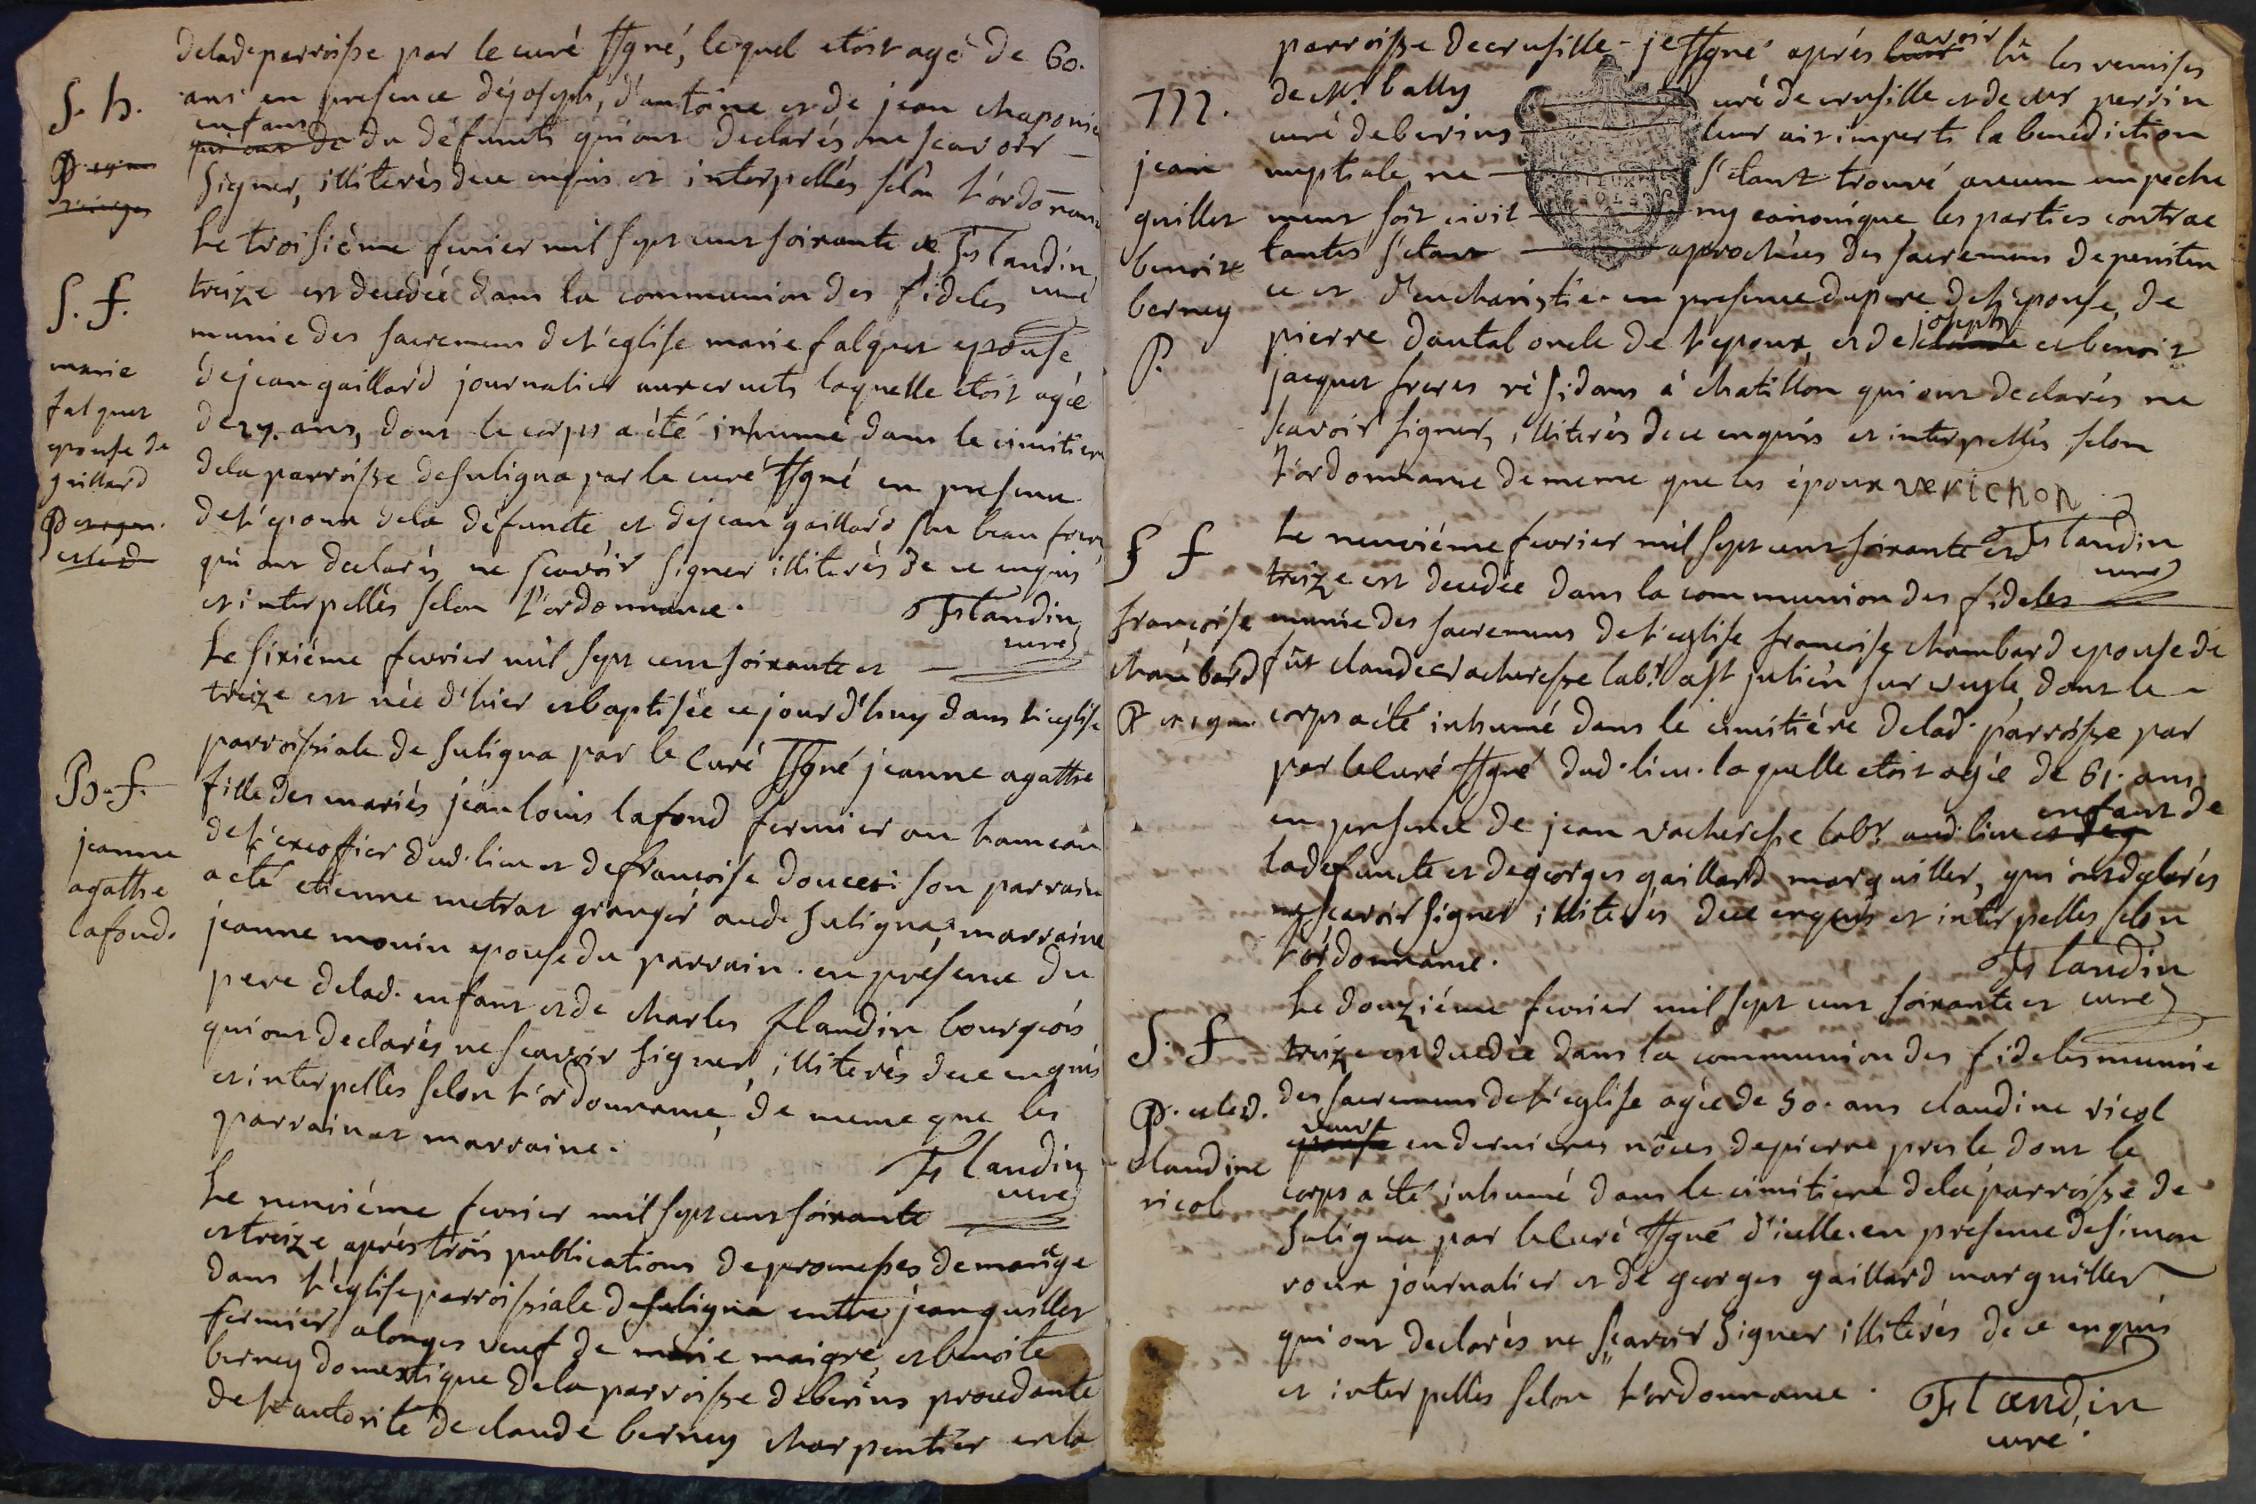 delad parroisse par le curé ssgné, lequel etoit agé de 60.
S. h.
ans en presence déjoseph, d'antoine et de jean chaponi
enfans
qui ont de du défunct qui ont declarés ne scavoir
Signer, illiterés de ce enquis et interpellés selon l'ordonnan
Flandin
curé
Le troisiéme fevrier mil sept cent soixante et
treize est decedée dans la communion des fideles
S. f.
marie
falquet
epouse de
gaillard
munie des sacremens de l'eglise marie falquet epouse
déjean gaillard journalier aux cructs laquelle etoit agée
de 27. ans, dont le corps a été inhumé dans le cimitiere
dela parroisse de suligna par le curé ssgné en presence
de l'epoux dela défuncte, et déjean gaillard son beau frere
qui ont declarés ne scavoir signer illiterés de ce enquis
et interpellés selon l'ordonnance.
Flandin
curé
Le sixiéme fevrier mil sept cent soixante et
treize est née d'hier et baptisée ce jourd'huy dans l'eglise
parroissiale de suligna par le curé ssgné jeanne agathe
B. f.
jeanne
agathe
lafond.
fille des mariés jean louis lafond fermier au hameau
de l'exoffier dud. lieu et defrancoise doucet: son parrain
a été etienne metrat granger aud. suligna, marraine
jeanne monin epouse du parrain. en présence du
pere delad. enfant et de charles flandin bourgeois
qui ont declarés ne scavoir signer, illiterés de ce enquis
et interpellés selon l'ordonnance, de meme que les
parrain et marraine.
Flandin
curé
Le neuviéme fevrier mil sept cent soixante
et treize, aprés trois publications de promesses de mariage
dans l'eglise parroissiale de suligna entre jean guillet
fermier a longes veuf de marie maigre, et benoite
berney domestique dela parroisse de berins procedante
de l'autorité de claude berney charpentier en la
parroisse de crusille - je ssgné aprés avoir lû les remises
M.
jean
guillet
benoite
berney
P.
de Mr. bally curé de crusille et de mr perrin
curé de berins leur ait imparti la benediction
nuptiale, ne s'etant trouvé aucun empeche
ment soit civil ny canonique, les parties contrac
tantes s'etant aprochées des sacremens de peniten
ce et d'eucharistie. en presence du pere de l'épouse, de
pierre dantal oncle de l'epoux, et de joseph et benoit
jacquet freres résidans á chatillon qui ont declarés ne
scavoir signer, illiterés de ce enquis et interpellés selon
l'ordonnance de meme que les époux verichon
Flandin
curé
Le neuviéme fevrier mil sept cent soixante et
treize est decedée dans la communion des fideles
S f
françoise
chambard
munie des sacremens de l'eglise francoise chambard epouse de
fût claude vacheresse labr. a st julien sur veyle, dont le
corps a été inhumé dans le cimitiére delad. parroisse par
par le curé ssgné dud. lieu. laquelle etoit agée de 61. ans.
en presence de jean vacheresse labr. aud. lieu enfant de
la defuncte et de georges gaillard marguiller, qui ont declarés
ne scavoir signer illiterés de ce enquis et interpellés selon
l'ordonnance.
Flandin
curé
Le douziéme fevrier mil sept cent soixante et
S. f
P. et led.
claudine
ricol
treize est decedée dans la communion des fideles munie
des sacremens de l'eglise agée de 50. ans claudine ricol
veuve
epouse en dernieres nôces de pierre presle dont le
corps a été inhumé dans le cimitiere dela parroisse de
Suligna par le curé ssgné d'icelle. en presence de simon
roux journalier et de georges gaillard marguiller
qui ont declarés ne scavoir signer illiterés de ce enquis
et interpellés selon l'ordonnance.
Flandin
curé.